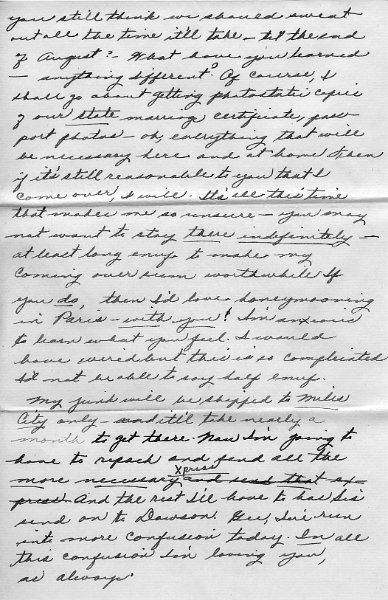 you still think we should sweat
out all the time it'll take - til the end
of August? - What have you learned
- anything different? Of course, I
shall go about getting photostatic copies
of our state marriage certificate, pass-
port photos - oh, everything that will
be necessary here and at home & then
if it's still reasonable to you that I
come over, I will. It's all this time
that makes me so unsure - you may
not want to stay there indefinitely -
at least long enuf to make my
coming over seem worthwhile. If
you do, then I'd love honeymooning
in Paris - with you! I'm anxious
to learn what you feel. I would
have wired but this is so complicated
I'd not be able to say half enuf.
My junk will be shipped to Miles
City only - and it'll take nearly a
month to get there. Now I'm going to
have to repack and send all the
more necessary xpress and send that ex-
press. And the rest I'll have to has
send on to Dawson. Gee, I've run
into more confusion today. In all
this confusion I'm loving you,
as always.